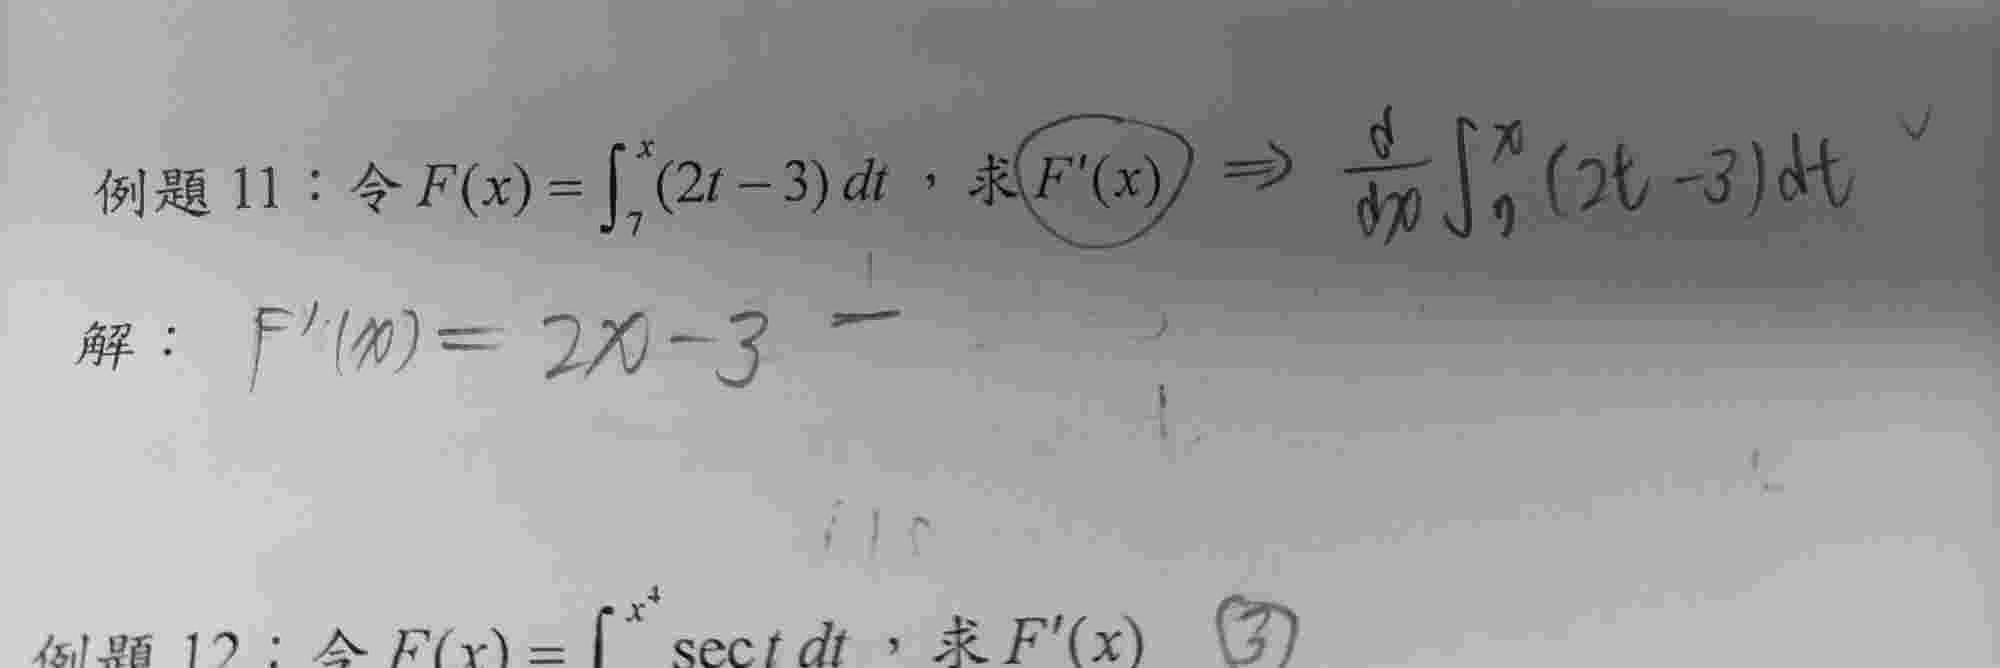 例題 11：令 F(x) = ∫₇ˣ (2t − 3) dt，求 F'(x) ⇒ d/dx ∫₇ˣ (2t − 3) dt ✓
解： F'(x) = 2x − 3
例題 12：令 F(x) = ∫ x⁴ sec t dt，求 F'(x) ③